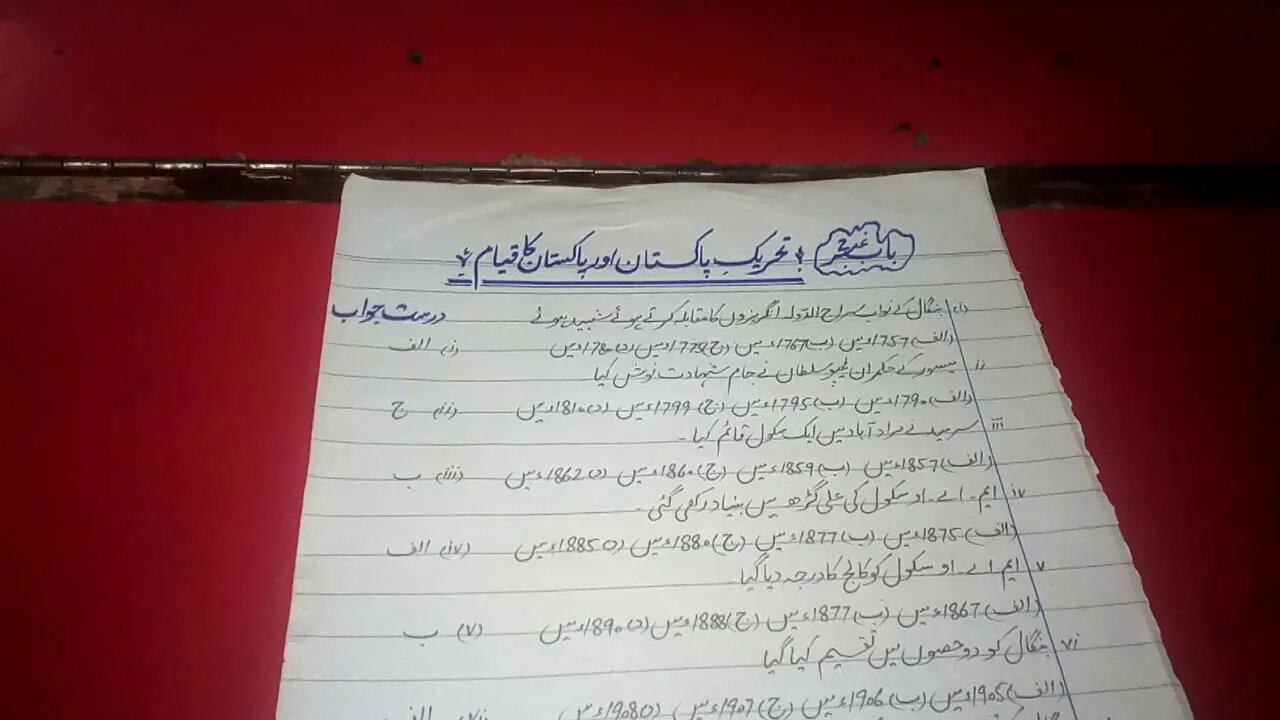 باب نمبر 2 تحریکِ پاکستان اور پاکستان کا قیام
(i) بنگال کے نواب سراج الدولہ انگریزوں کا مقابلہ کرتے ہوئے شہید ہوئے درست جواب
(الف) 1757ء میں (ب) 1767ء میں (ج) 1778ء میں (د) 1780ء میں (i) الف
ii میسور کے حکمران ٹیپو سلطان نے جام شہادت نوش کیا۔
(الف) 1790ء میں (ب) 1795ء میں (ج) 1799ء میں (د) 1810ء میں (ii) ج
iii سرسید نے مراد آباد میں ایک سکول قائم کیا۔
(الف) 1857ء میں (ب) 1859ء میں (ج) 1860ء میں (د) 1862ء میں (iii) ب
iv ایم۔ اے۔ او سکول کی علی گڑھ میں بنیاد رکھی گئی۔
(الف) 1875ء میں (ب) 1877ء میں (ج) 1880ء میں (د) 1885ء میں (iv) الف
v ایم اے۔ او سکول کو کالج کا درجہ دیا گیا۔
(الف) 1867ء میں (ب) 1877ء میں (ج) 1888ء میں (د) 1890ء میں (v) ب
vi بنگال کو دو حصوں میں تقسیم کیا گیا
(الف) 1905ء میں (ب) 1906ء میں (ج) 1907ء میں (د) 1908ء میں الف